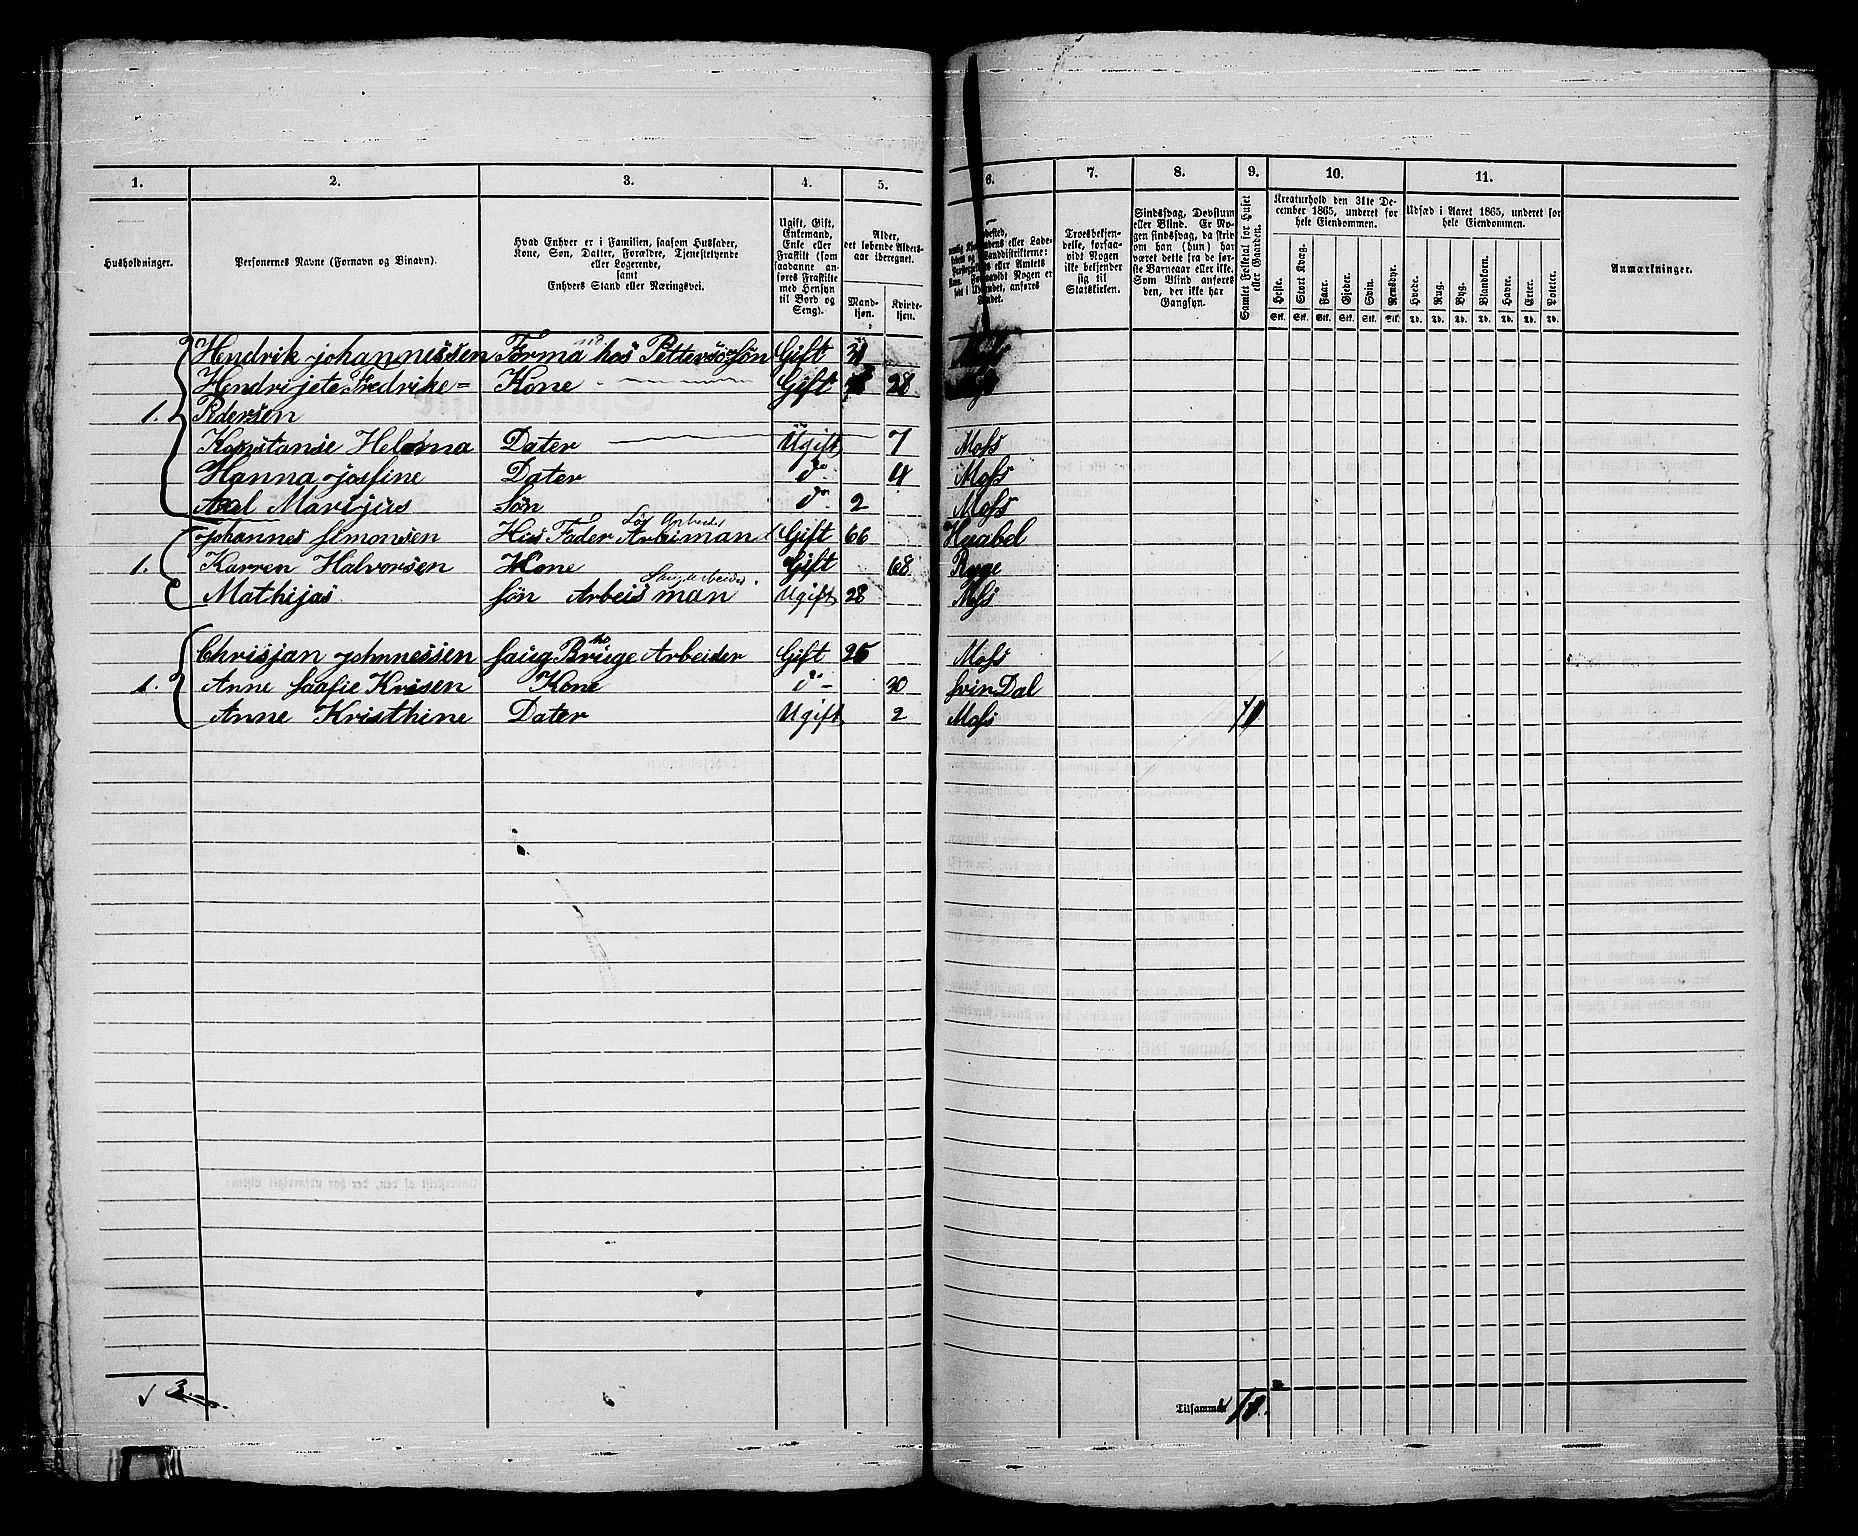 1. 2. 3. 4. 5. 6. 7. 8. 9. 10. 11.
Husholdninger.
Personernes Navne (Fornavn og Binavn).
Hvad Enhver er i Familien, saasom Husfader,
Kone, Søn, Datter, Forældre, Tjenestetyende
eller Logerende,
samt
Enhvers Stand eller Næringsvei.
Ugift, Gift,
Enkemand,
Enke eller
Fraskilt (som
saadanne an-
føres Fraskilte
med Hensyn
til Bord og
Seng).
Alder,
det løbende Alders-
aar iberegnet.
Mand-
kjøn.
Kvinde-
kjøn.
Troesbekjen-
delse, forsaa-
vidt Nogen
ikke bekjender
sig til
Statskirken.
Sindssvag, Døvstum
eller Blind. Er No-
gen sindssvag, da skriv
om han (hun) har
været dette fra de før-
ste Barneaar eller ikke.
Som Blind anføres
den, der ikke har
Gangsyn.
Samlet Folketal for Huset
eller Gaarden.
Kreaturhold den 31te De-
cember 1865, underet for
hele Eiendommen.
Heste. Stort Kvæg. Faar. Gjeder. Svin. Rensdyr.
Stk. Stk. Stk. Stk. Stk. Stk.
Udsæd i Aaret 1865, underet for
hele Eiendommen.
Hvede. Rug. Byg. Blandkorn. Havre. Erter. Poteter.
Td. Td. Td. Td. Td. Td. Td.
Anmærkninger.
Hendrik Johannessen Forma hos Gift
Hendrijete Fredrike= Kone Gift 28
1. Pedersen
Konstanse Helena Dater Ugift 7 Moss
Hanna Josfine Dater do 4 Moss
Marijus Søn do 2 Moss
Johannes Simonsen Hus Fader Arbeiman Gift 66 Haabel
1. Karren Halvorsen Kone Gift 68 Ryge
Mathijas Søn Arbeis man Ugift 28 Moss
Chrisjan Johnnessen Saug Bruge Arbeider Gift 25 Moss
1. Anne Saafie Krisen Kone do 30 SvinDal
Anne Kristhine Dater Ugift 2 Moss 11
3.
Tilsammen 11.